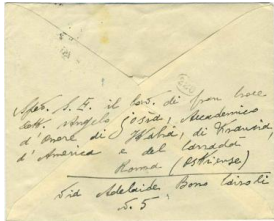 Sped. S. E. il Cav. di gran croce
dott. Angelo Josia, Accademico
d'onore di Italia, di Francia,
d'America e del Canadà
Roma (Ostiense)
Via Adelaide Bono Cairoli
N. 5